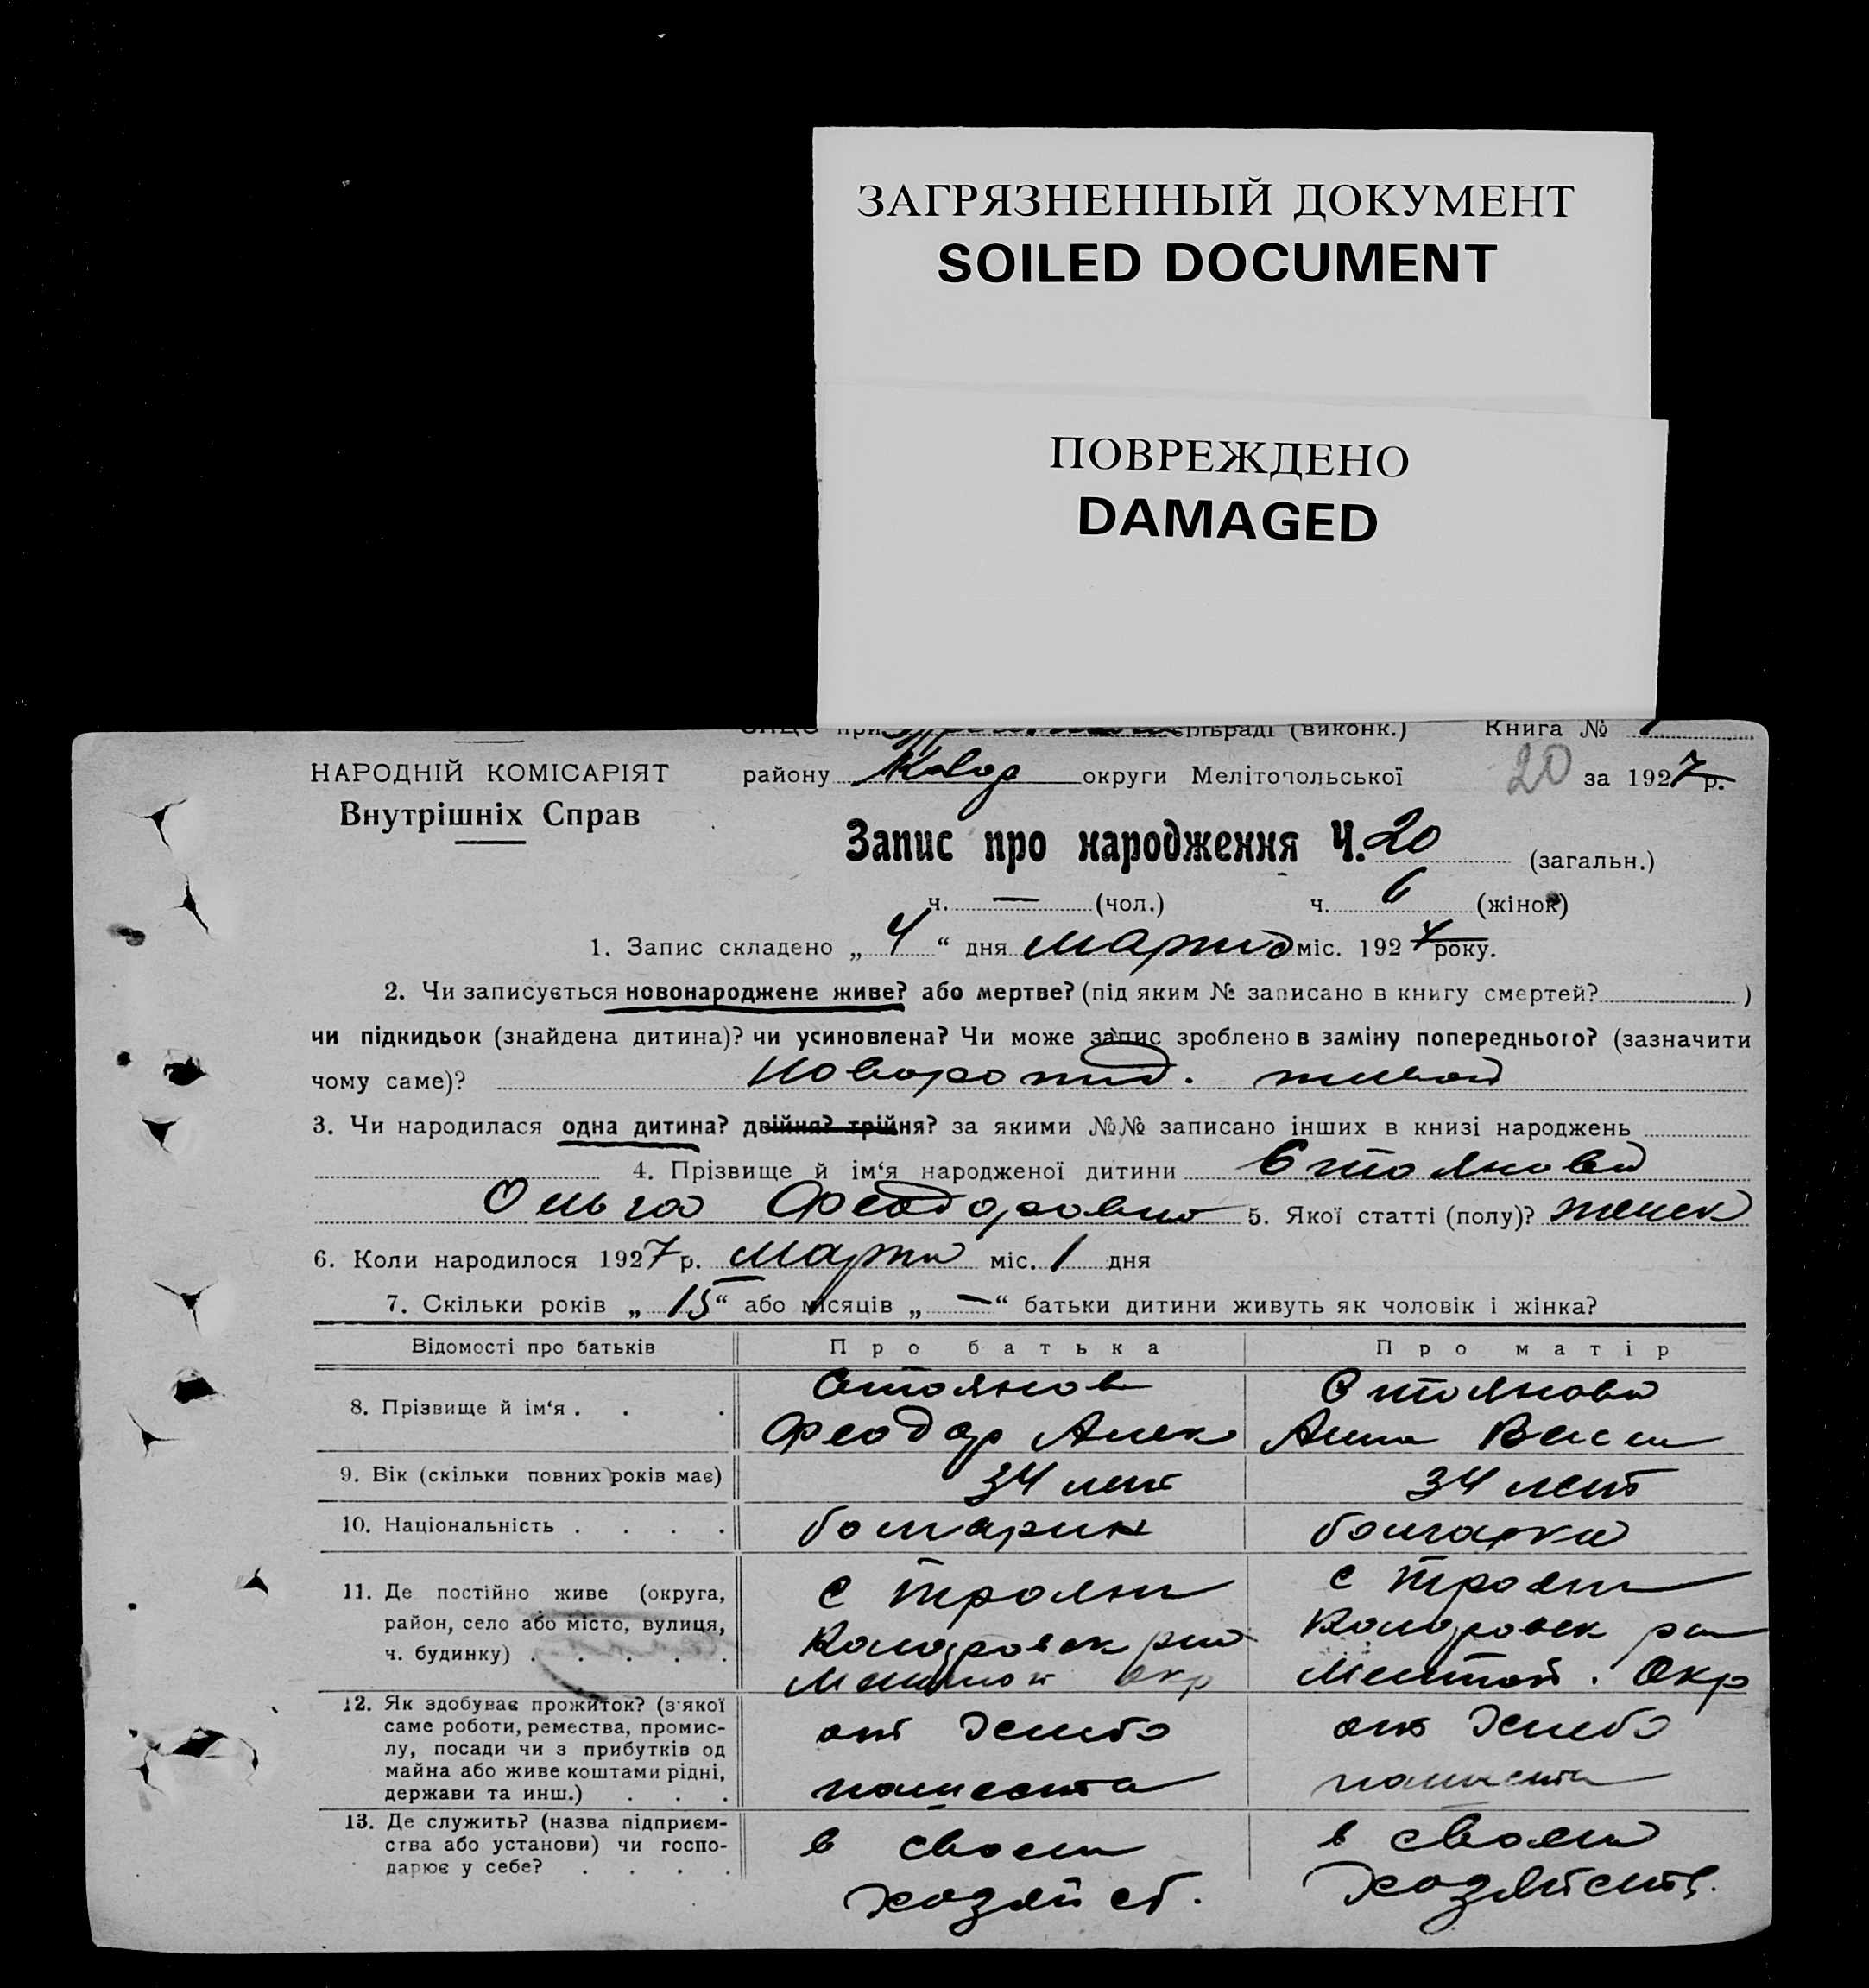 ЗАГРЯЗНЕННЫЙ ДОКУМЕНТ
SOILED DOCUMENT
ПОВРЕЖДЕНО
DAMAGED
при сільраді (виконк.) Книга №
НАРОДНІЙ КОМІСАРІЯТ
Внутрішніх Справ
району округи Мелітопольської 20 за 1927 р.
Запис про народження Ч. 20 (загальн.)
ч. — (чол.) ч. 6 (жінок)
1. Запис складено „ 4 “ дня марта міс. 1927 року.
2. Чи записується новонароджене живе? або мертве? (під яким № записано в книгу смертей? )
чи підкидьок (знайдена дитина)? чи усиновлена? Чи може запис зроблено в заміну попереднього? (зазначити
чому саме)?Новорожд. живой
3. Чи народилася одна дитина? двійня? трійня? за якими №№ записано інших в книзі народжень
4. Прізвище й ім‘я народженої дитини Стоянова
Ольга Феодоровна 5. Якої статті (полу)? женск
6. Коли народилося 1927 р. марта міс. 1 дня
7. Скільки років „ 15 “ або місяців „ — “ батьки дитини живуть як чоловік і жінка?
Відомості про батьків Про батька Про матір
8. Прізвище й ім‘я . . . Стоянов Стоянова
Феодор Алек Анна Васил
9. Вік (скільки повних років має) 34 лет 34 лет
10. Національність . . . . болгарин болгарка
11. Де постійно живе (округа, с Трояны с Трояны
район, село або місто, вулиця, Колоровск Колоровск
ч. будинку) . . . . . Мелитоп окр Мелитоп. Окр
12. Як здобуває прожиток? (з якої
саме роботи, ремества, промис- от хлебо от хлебо
лу, посади чи з прибутків од
майна або живе коштами рідні, пашества пашества
держави та инш.) . . .
13. Де служить? (назва підприєм- в своем в своем
ства або установи) чи госпо-
дарює у себе? . . . . хозяйст. хозяйств.